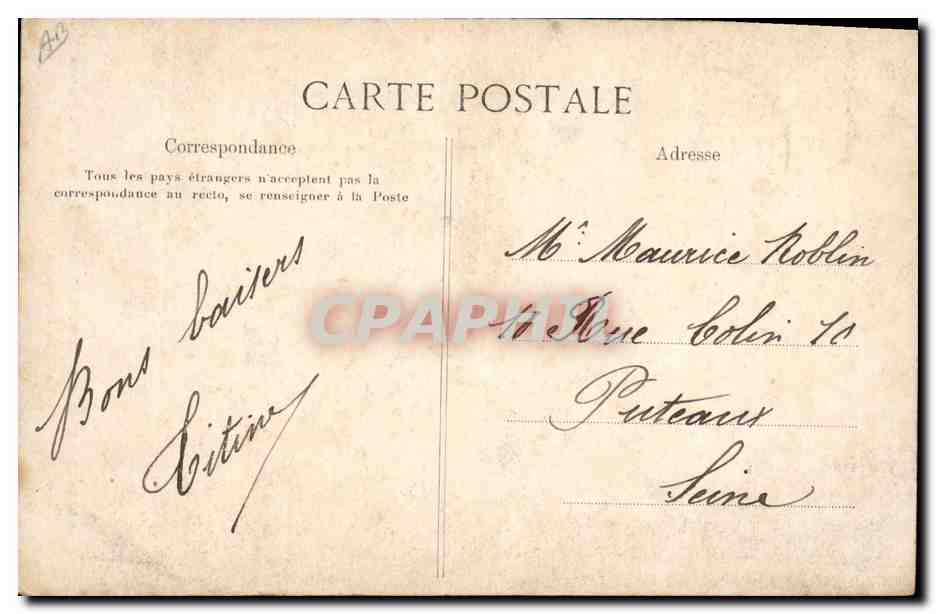 AB
CARTE POSTALE
Correspondance
Tous les pays étrangers n'acceptent pas la
correspondance au recto, se renseigner à la Poste
Bons baisers
Titine
Adresse
Mr Maurice Roblin
10 Rue Colin 10
Puteaux
Seine
CPAPHIL